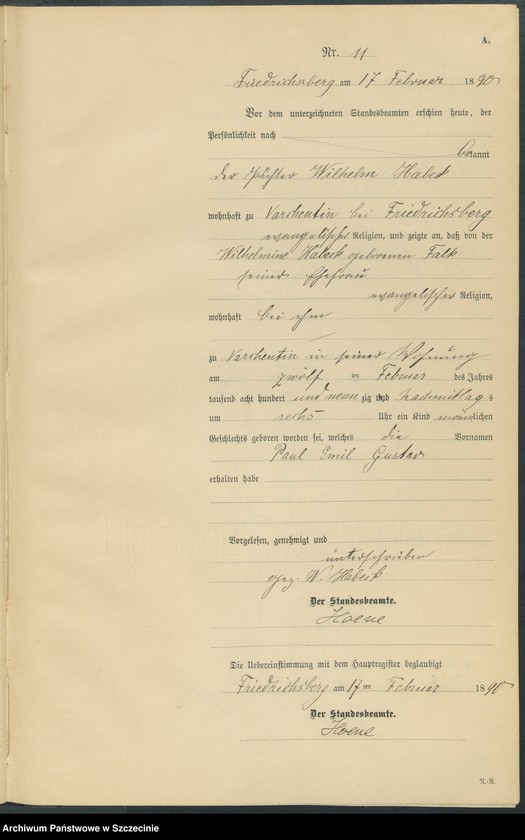 A.
Nr. 11
Friedrichsberg am 17 Februar 1890
Vor dem unterzeichneten Standesbeamten erschien heute, der
Persönlichkeit nach
bekannt
der Pächter Wilhelm Habeck
wohnhaft zu Varchentin bei Friedrichsberg
evangelischer Religion, und zeigte an, daß von der
Wilhelmine Habeck geborenen Falk
seiner Ehefrau
evangelischer Religion,
wohnhaft bei ihm
zu Varchentin in seiner Wohnung
am zwölf ten Februar des Jahres
tausend acht hundert und neunzig nachmittags
um sechs Uhr ein Kind männlichen
Geschlechts geboren worden sei, welches die Vornamen
Paul Emil Gustav
erhalten habe
Vorgelesen, genehmigt und
unterschrieben
gez. W. Habeck
Der Standesbeamte.
Hoene
Die Uebereinstimmung mit dem Hauptregister beglaubigt
Friedrichsberg am 17 ten Februar 1890
Der Standesbeamte.
Hoene
R.-R.
Archiwum Państwowe w Szczecinie